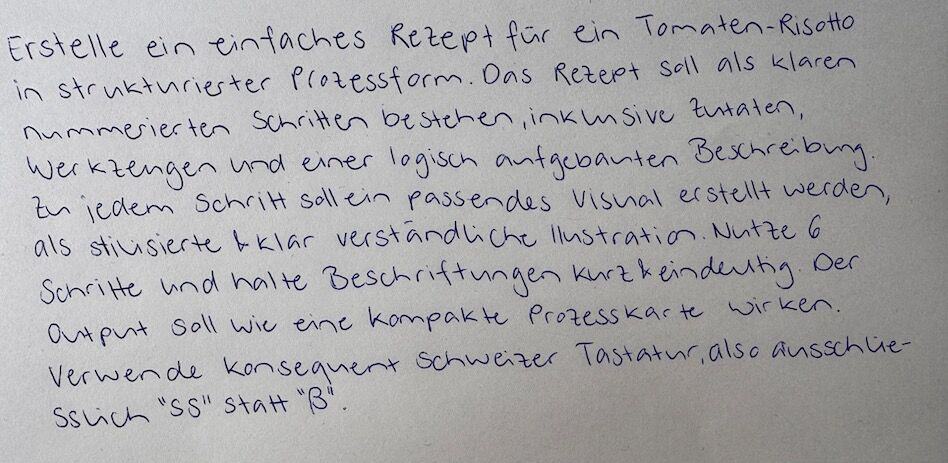 Erstelle ein einfaches Rezept für ein Tomaten-Risotto
in strukturierter Prozessform. Das Rezept soll als klaren
nummerierten Schritten bestehen, inklusive Zutaten,
Werkzeugen und einer logisch aufgebauten Beschreibung.
Zu jedem Schritt soll ein passendes Visual erstellt werden,
als stilisierte & klar verständliche Ilustration. Nutze 6
Schritte und halte Beschriftungen kurz & eindeutig. Der
Output soll wie eine kompakte Prozesskarte wirken.
Verwende konsequent Schweizer Tastatur, also ausschlie-
sslich "ss" statt "ß".